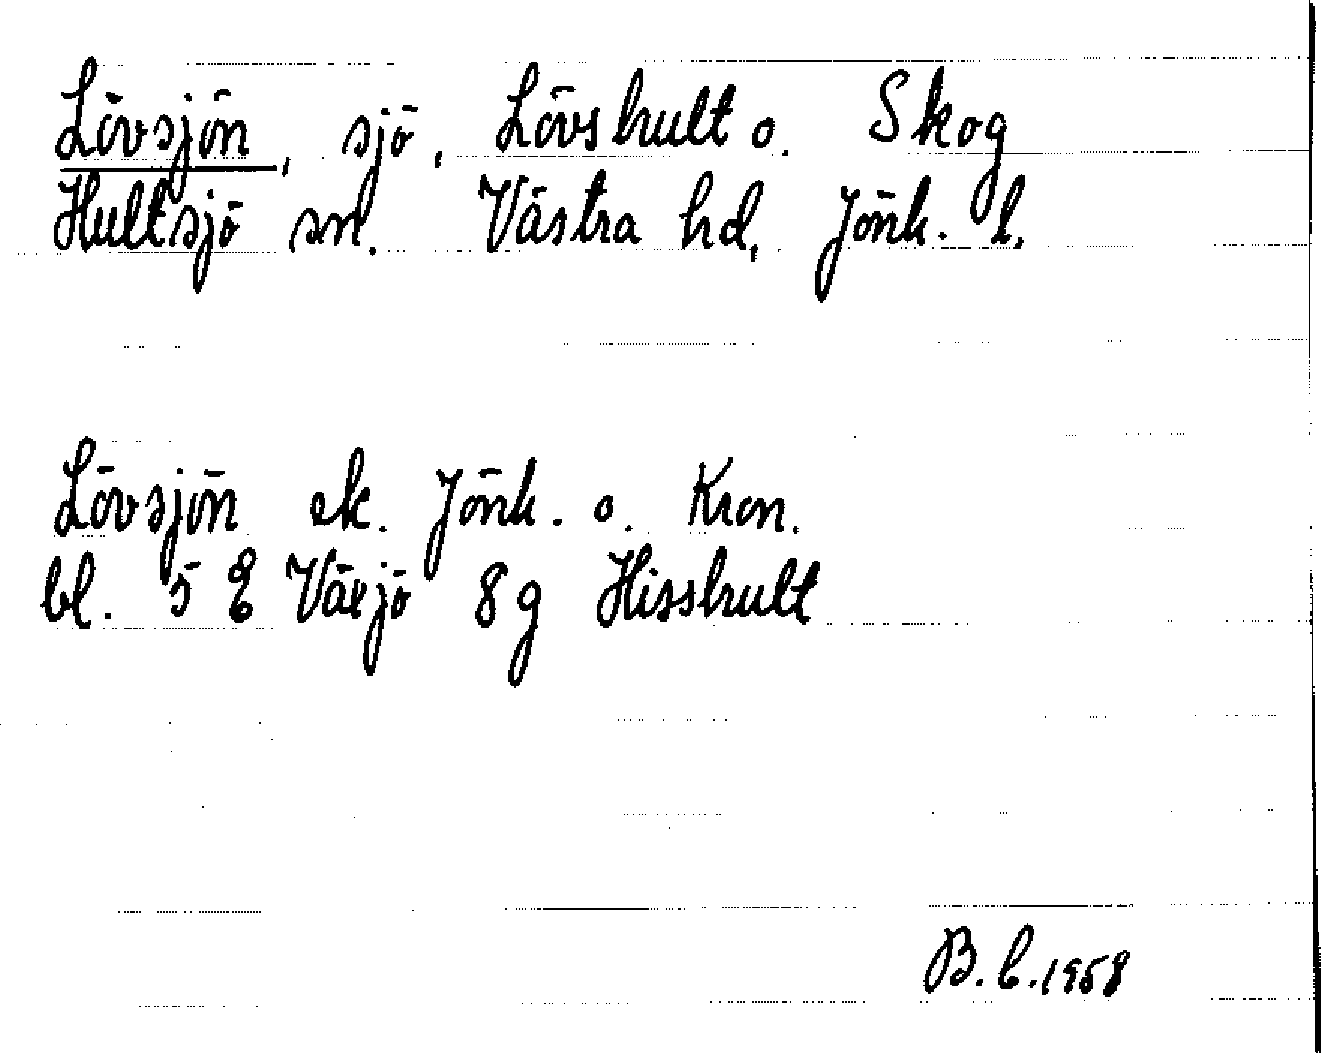 Lövsjön, sjö, Lövshult o. Skog
Hultsjö sn. Västra hd, Jönk. l.
Lövsjön ek. Jönk. o. Kron.
bl. 5 E Växjö 8g Hisshult
B.E. 1958